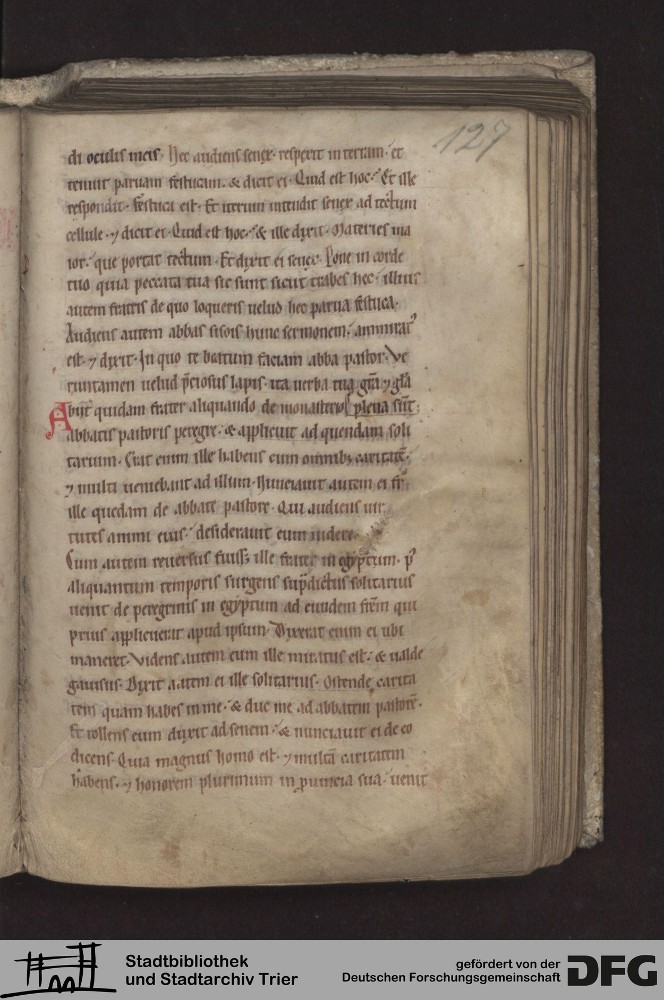 127
di oculis meis. Hec audiens senex. respexit in terram. et
tenuit paruam festucam. & dicit ei. Quid est hoc? Et ille
respondit. festuca est. Et iterum intendit senex ad tectum
cellule. ⁊ dicit ei. Quid est hoc? & ille dixit. Materies ma
ior. que portat tectum. Et dixit ei senex. Pone in corde
tuo quia peccata tua sic sunt sicut trabes hec. illius
autem fratris de quo loqueris uelud hec parua festuca.
Audiens autem abbas sisois hunc sermonem. ammirat᷒
est. ⁊ dixit. In quo te beatum faciam abba pastor. Ve
runtamen uelud p̄ciosus lapis. ita uerba tua gr̄a ⁊ gl̄a
Abijt quidam frater aliquando de monasterio plena sūt.
abbatis pastoris peregre. & applicuit ad quendam soli
tarium. Erat enim ille habens cum omnibꝫ caritatē.
⁊ multi ueniebant ad illum. Nunciauit autem ei fr̄
ille quedam de abbate pastore. Qui audiens uir
tutes animi eius. desiderauit eum uidere.
Cum autem reuersus fuissꝫ ille frater in egyptum. p᷒
aliquantum temporis surgens sup̄dictus solitarius
uenit de peregrinis in egyptum ad eundem fr̄em qui
prius applicuerat apud ipsum. Dixerat enim ei ubi
maneret. Videns autem eum ille miratus est. & ualde
gauisus. Dixit autem ei ille solitarius. Ostende carita
tem quam habes in me. & duc me ad abbatem pastorē.
Et tollens eum duxit ad senem. & nunciauit ei de eo
dicens. Quia magnus homo est. ⁊ multā caritatem
habens. ⁊ honorem plurimum in ꝓuincia sua. uenit
Stadtbibliothek
und Stadtarchiv Trier
gefördert von der
Deutschen Forschungsgemeinschaft
DFG